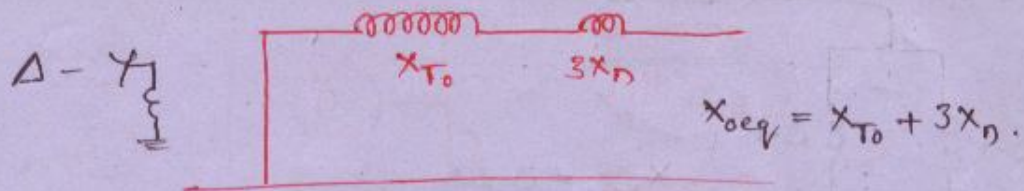 Δ - Y
X_T₀
3Xₙ
X₀eq = X_T₀ + 3Xₙ.